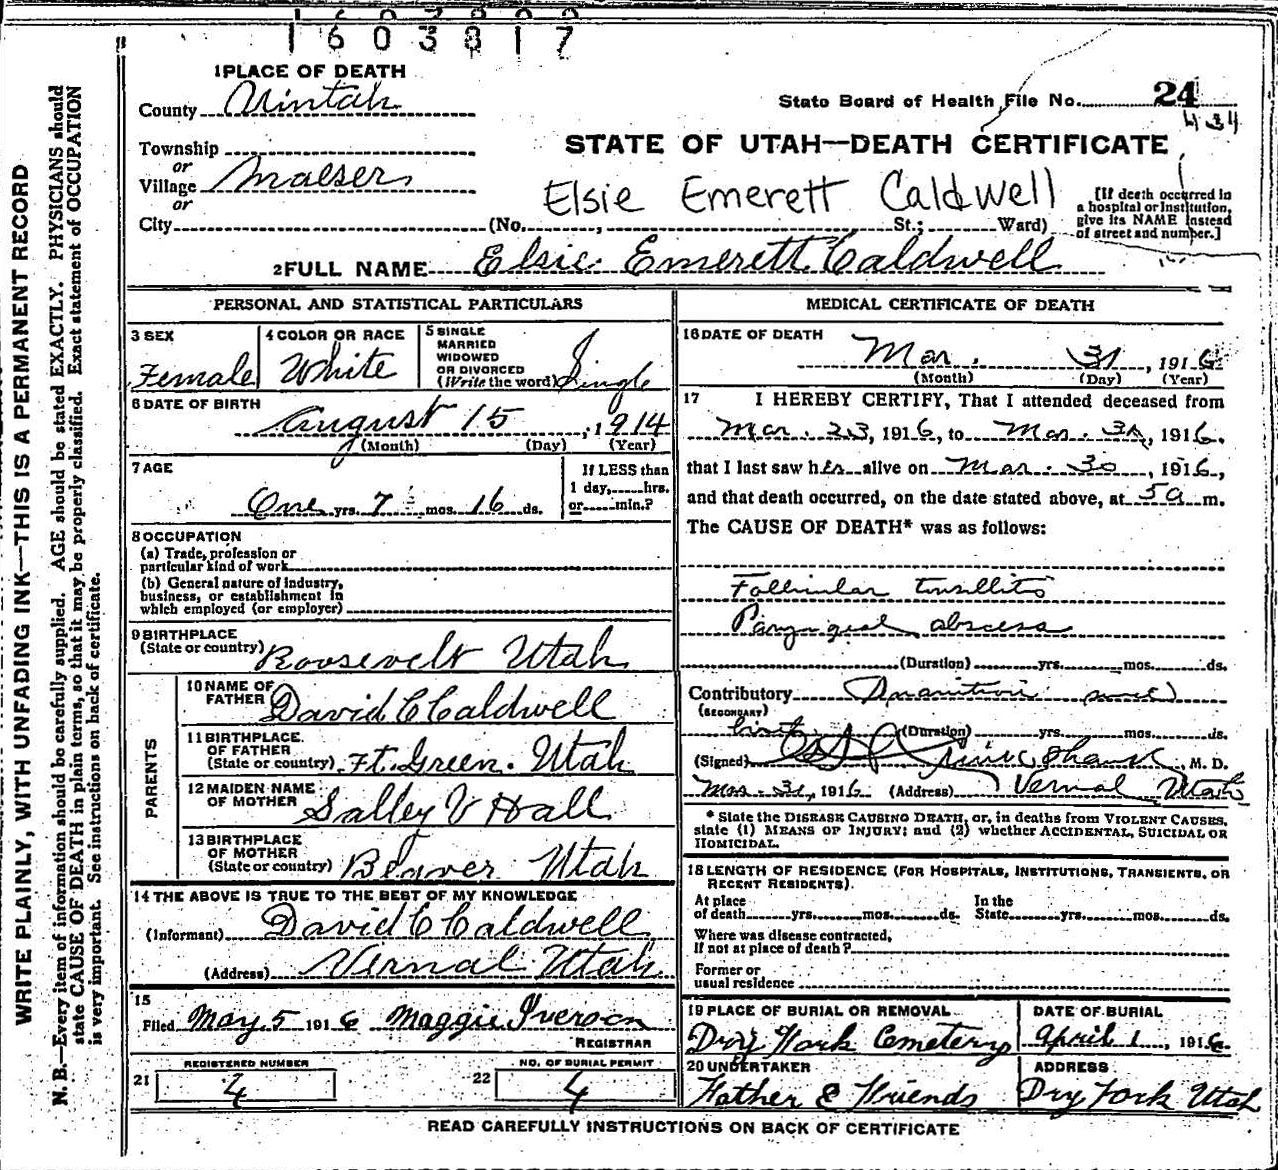 1603817
1 PLACE OF DEATH
County Uintah
State Board of Health File No. 24
434
Township
or
Village Maeser
or
City
STATE OF UTAH—DEATH CERTIFICATE
Elsie Emerett Caldwell
(No. , St.; Ward)
[If death occurred in
a hospital or Institution,
give its NAME Instead
of street and number.]
2 FULL NAME Elsie Emerett Caldwell
PERSONAL AND STATISTICAL PARTICULARS
3 SEX
Female
4 COLOR OR RACE
White
5 SINGLE
MARRIED
WIDOWED
OR DIVORCED
(Write the word) Single
6 DATE OF BIRTH
August 15, 1914
(Month) (Day) (Year)
7 AGE
One yrs. 7 mos. 16 ds.
If LESS than
1 day, hrs.
or min.?
8 OCCUPATION
(a) Trade, profession or
particular kind of work
(b) General nature of industry,
business, or establishment in
which employed (or employer)
9 BIRTHPLACE
(State or country) Roosevelt Utah
PARENTS
10 NAME OF
FATHER David C Caldwell
11 BIRTHPLACE
OF FATHER
(State or country) Ft. Green. Utah
12 MAIDEN NAME
OF MOTHER Salley V Hall
13 BIRTHPLACE
OF MOTHER
(State or country) Beaver Utah
14 THE ABOVE IS TRUE TO THE BEST OF MY KNOWLEDGE
(Informant) David C Caldwell
(Address) Vernal Utah
15
Filed May 5 1916 Maggie Iverson
REGISTRAR
21 REGISTERED NUMBER
4
22 NO. OF BURIAL PERMIT
4
MEDICAL CERTIFICATE OF DEATH
16 DATE OF DEATH
Mar. 31, 1916
(Month) (Day) (Year)
17 I HEREBY CERTIFY, That I attended deceased from
Mar. 23, 1916, to Mar. 31, 1916.
that I last saw her alive on Mar. 30, 1916,
and that death occurred, on the date stated above, at 5 a m.
The CAUSE OF DEATH* was as follows:
Follicular tonsillitis
abscess
(Duration) yrs. mos. ds.
Contributory Inanition
(SECONDARY)
(Duration) yrs. mos. ds.
(Signed) , M. D.
Mar. 31, 1916 (Address) Vernal Utah
* State the DISEASE CAUSING DEATH, or, in deaths from VIOLENT CAUSES,
state (1) MEANS OF INJURY; and (2) whether ACCIDENTAL, SUICIDAL OR
HOMICIDAL.
18 LENGTH OF RESIDENCE (FOR HOSPITALS, INSTITUTIONS, TRANSIENTS, OR
RECENT RESIDENTS).
At place
of death yrs. mos. ds.
In the
State yrs. mos. ds.
Where was disease contracted,
If not at place of death?
Former or
usual residence
19 PLACE OF BURIAL OR REMOVAL
Dry Fork Cemetery
DATE OF BURIAL
April 1, 1916
20 UNDERTAKER
Father & Friends
ADDRESS
Dry Fork Utah
READ CAREFULLY INSTRUCTIONS ON BACK OF CERTIFICATE
WRITE PLAINLY, WITH UNFADING INK—THIS IS A PERMANENT RECORD
N. B.—Every item of information should be carefully supplied. AGE should be stated EXACTLY. PHYSICIANS should
state CAUSE OF DEATH in plain terms, so that it may be properly classified. Exact statement of OCCUPATION
is very important. See instructions on back of certificate.